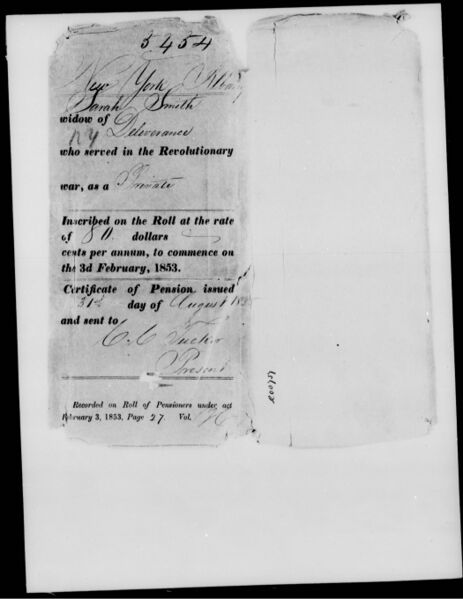 5454
New York Albany
Sarah Smith
widow of
NY Deliverance
who served in the Revolutionary
war, as a Private
Inscribed on the Roll at the rate
of 80 dollars
cents per annum, to commence on
the 3d February, 1853.
Certificate of Pension issued
31st day of August
and sent to
C. C. Tucker
Present
Recorded on Roll of Pensioners under act
February 3, 1853, Page 27 Vol.